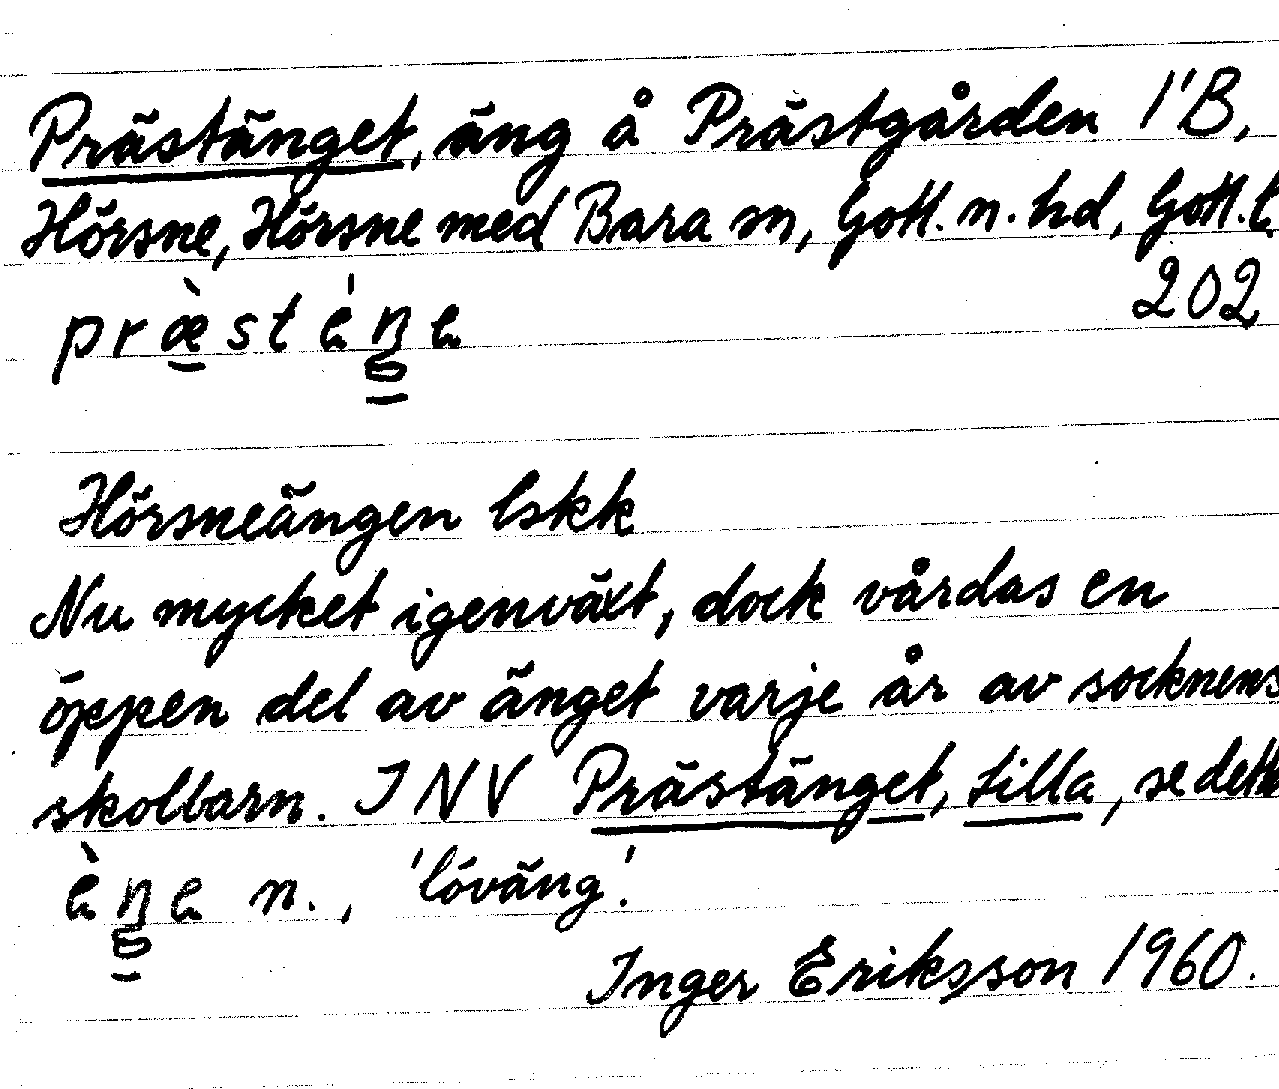 Prästänget, äng å Prästgården 1'B,
Hörsne, Hörsne med Bara sn, Gotl. n. hd, Gotl. l.
202
Hörsneängen lskk
Nu mycket igenväxt, dock vårdas en
öppen del av änget varje år av socknens
skolbarn. INV Prästänget, Lilla, se detta
n., 'löväng'.
Inger Eriksson 1960.